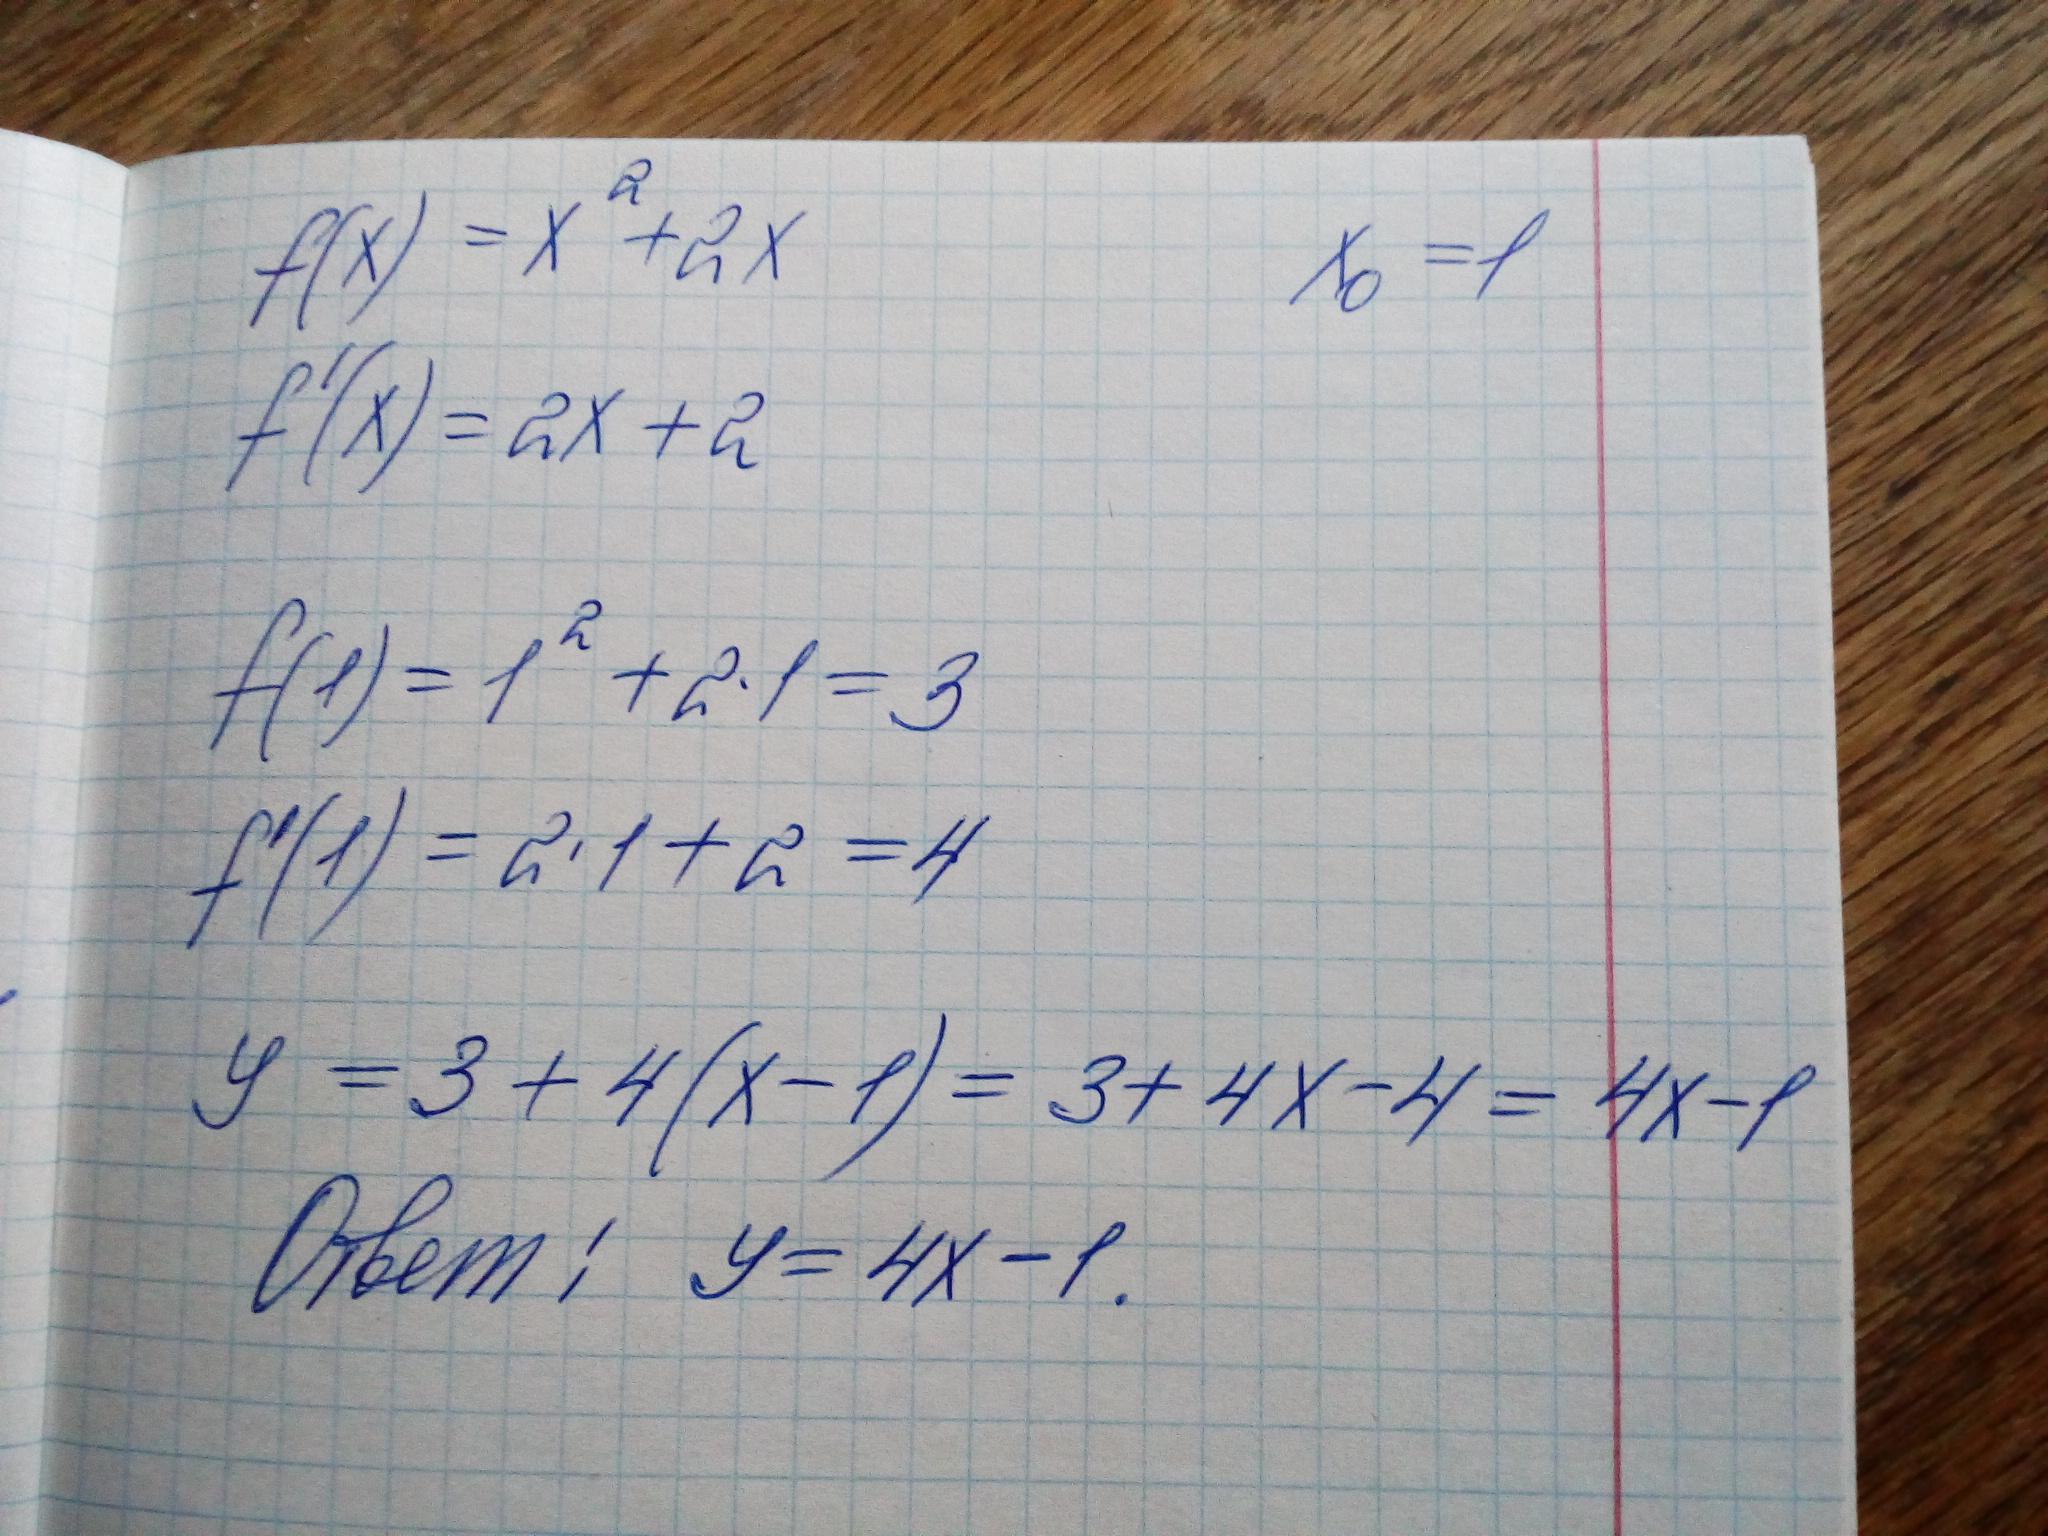 f(x) = x² + 2x x₀ = 1
f'(x) = 2x + 2
f(1) = 1² + 2·1 = 3
f'(1) = 2·1 + 2 = 4
y = 3 + 4(x - 1) = 3 + 4x - 4 = 4x - 1
Ответ: y = 4x - 1.